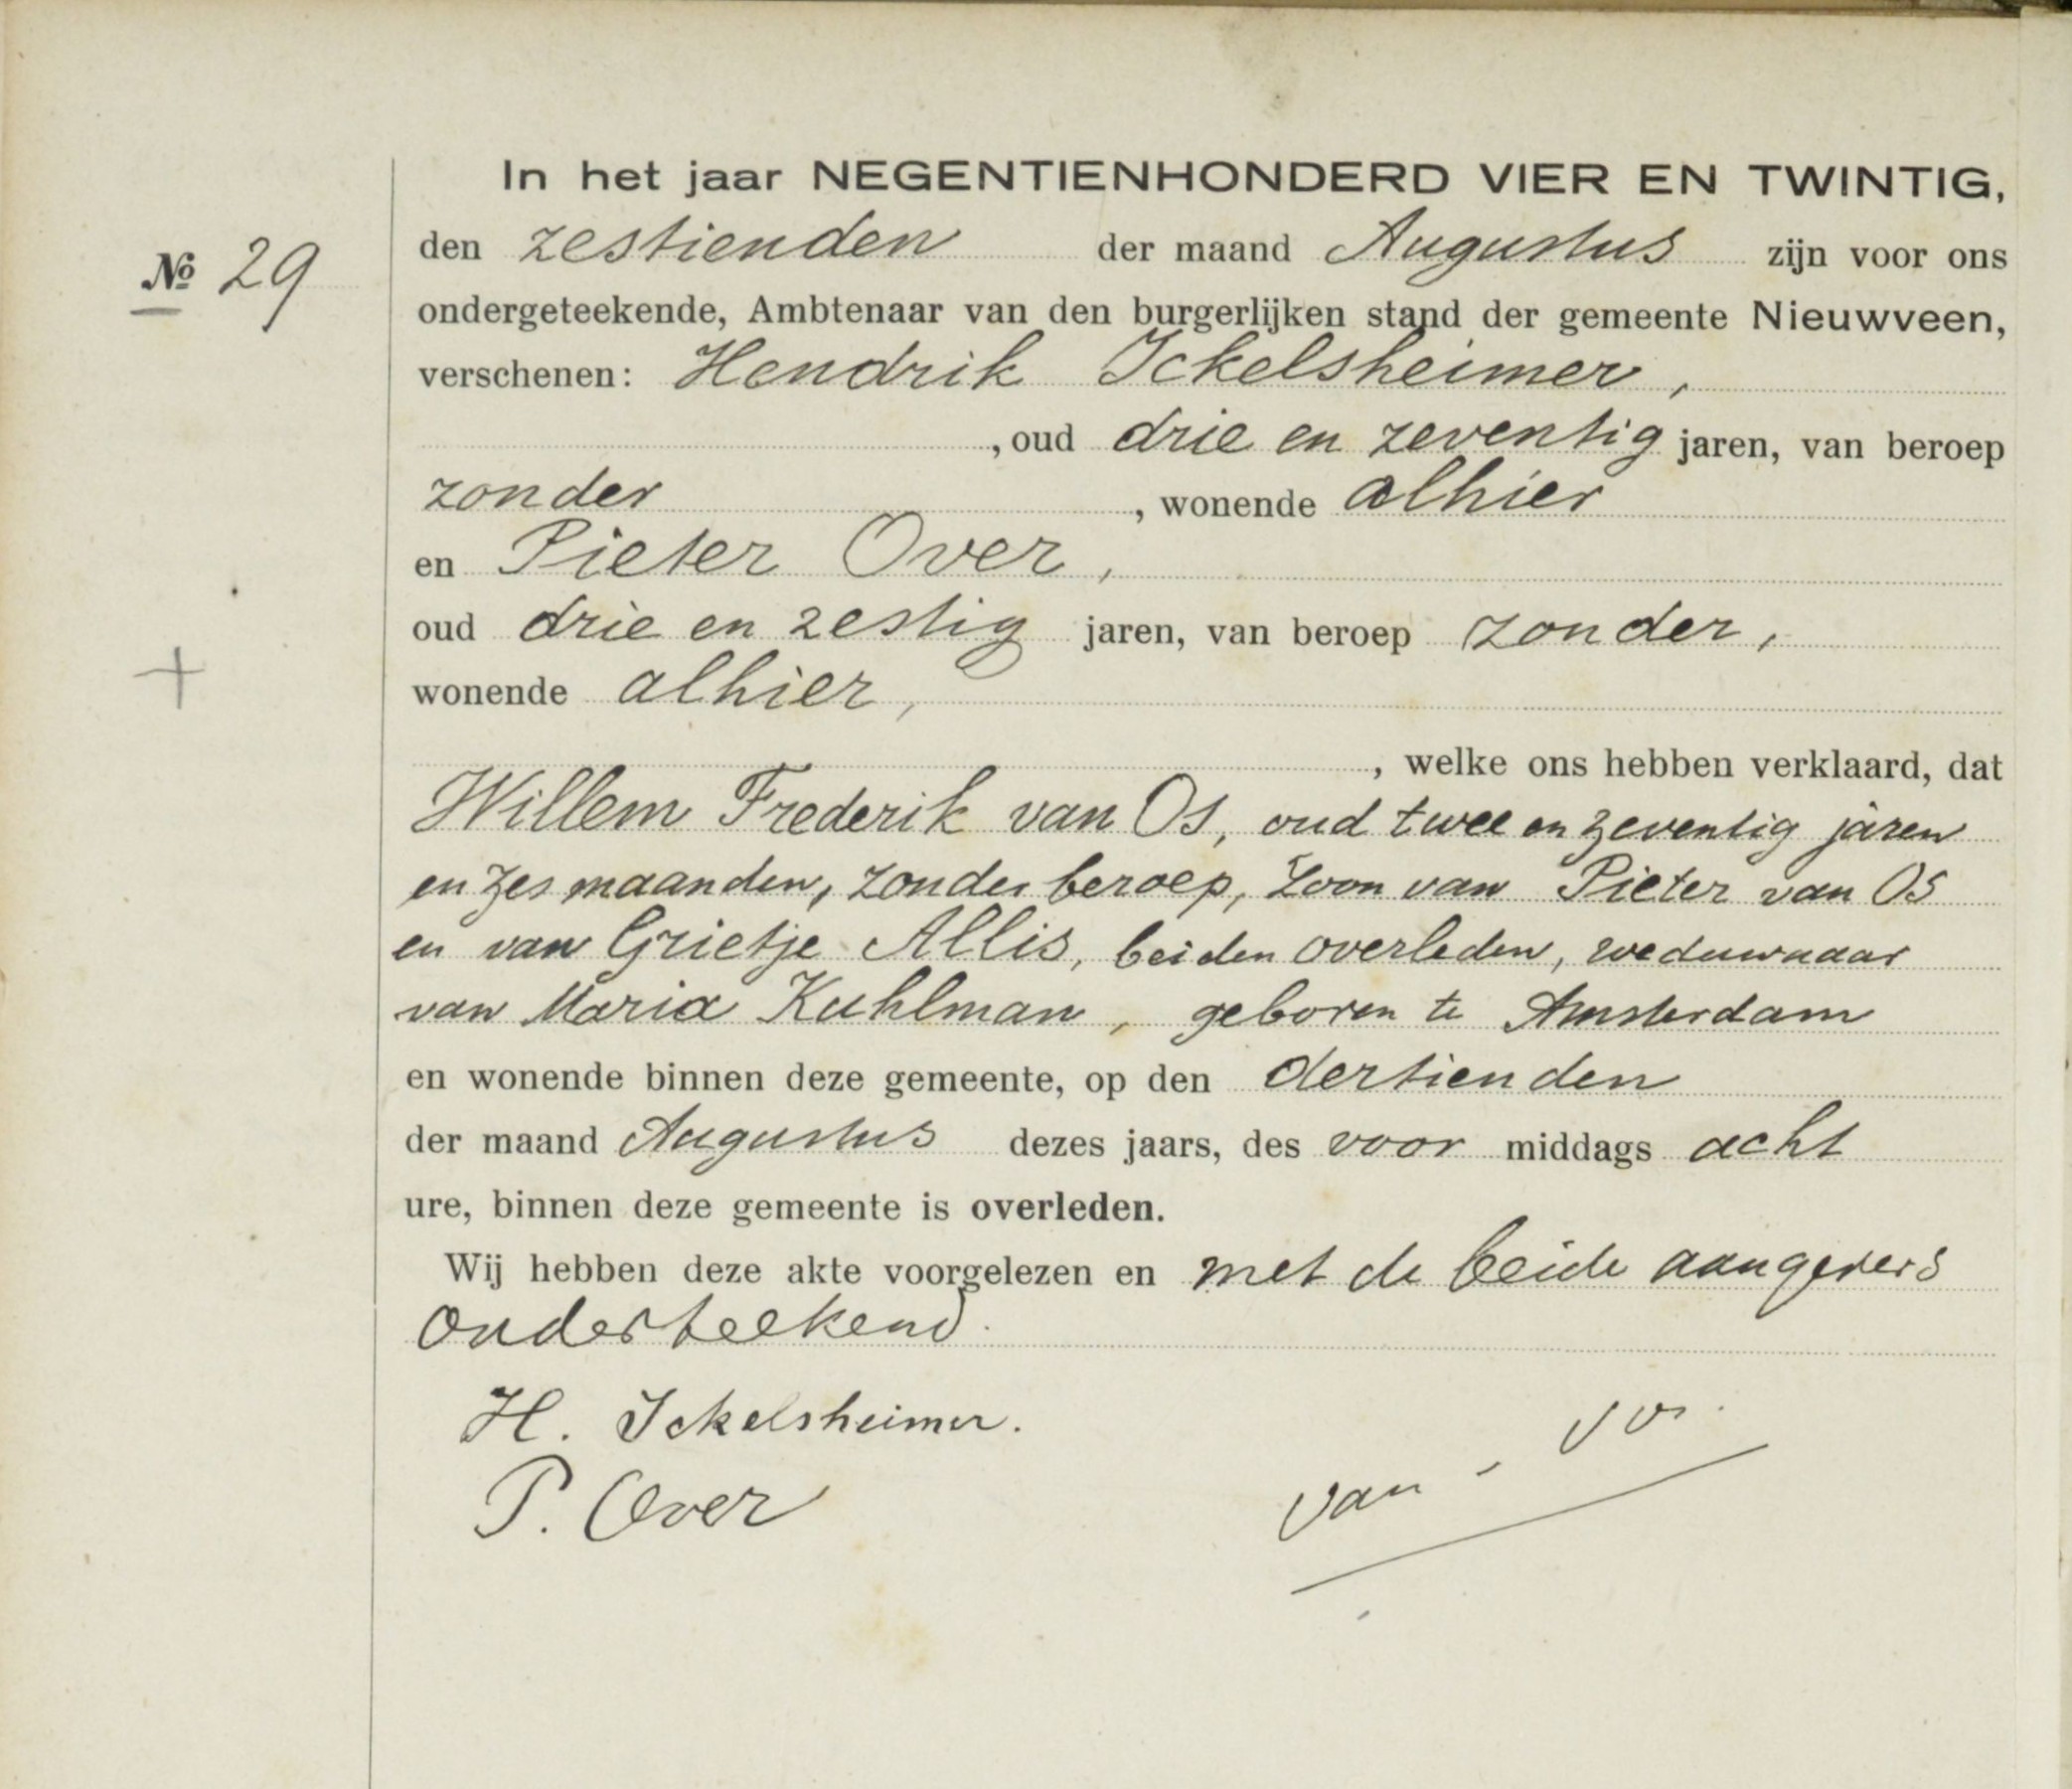 In het jaar NEGENTIENHONDERD VIER EN TWINTIG,
den zestienden der maand Augustus zijn voor ons
№ 29
ondergeteekende, Ambtenaar van den burgerlijken stand der gemeente Nieuwveen,
verschenen: Hendrik Ickelsheimer,
, oud drie en zeventig jaren, van beroep
zonder, wonende alhier
en Pieter Over,
oud drie en zestig jaren, van beroep zonder,
wonende alhier,
, welke ons hebben verklaard, dat
Willem Frederik van Os, oud twee en zeventig jaren
en zes maanden, zonder beroep, zoon van Pieter van Os
en van Grietje Allis, beiden overleden, weduwnaar
van Maria Kuhlman, geboren te Amsterdam
en wonende binnen deze gemeente, op den dertienden
der maand Augustus dezes jaars, des voor middags acht
ure, binnen deze gemeente is overleden.
Wij hebben deze akte voorgelezen en met de beide aangevers
onderteekend.
H. Ickelsheimer.
P. Over